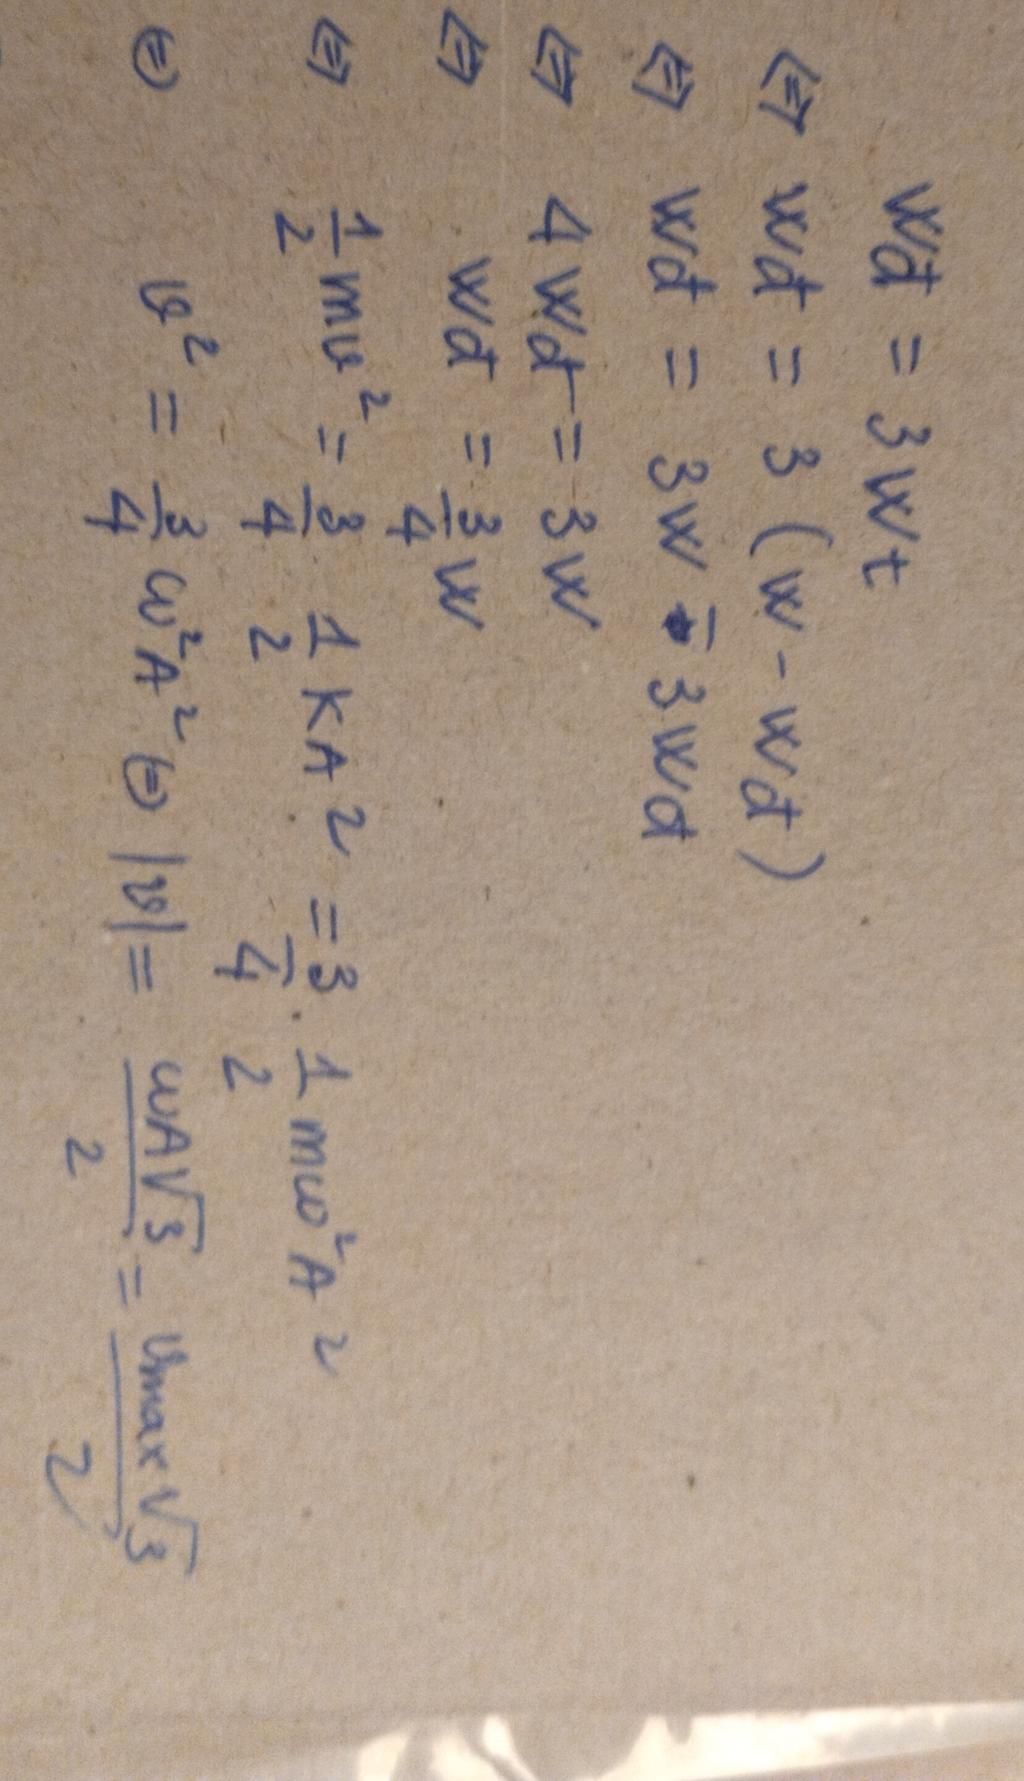 Wđ = 3Wt
⇔ Wđ = 3(W - Wđ)
⇔ Wđ = 3W - 3Wđ
⇔ 4Wđ = 3W
⇔ Wđ = 3/4 W
⇔ 1/2 mv² = 3/4 1/2 KA² = 3/4 . 1/2 mω²A²
⇔ v² = 3/4 ω²A² ⇔ |v| = ωA√3/2 = vmax√3/2